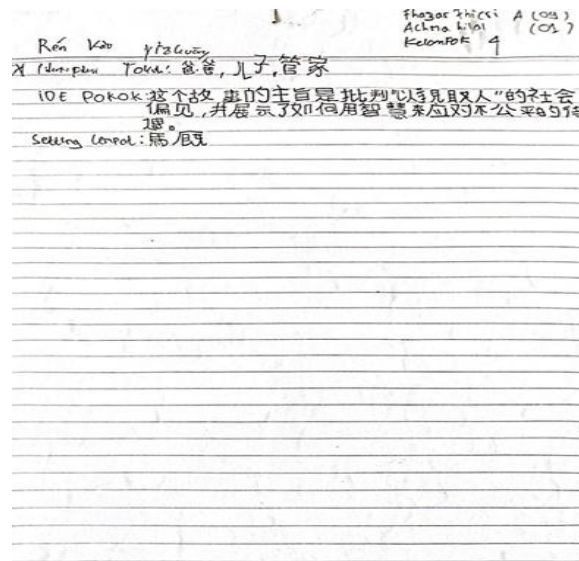 Fhazar Thicsi A (09)
Achma Hilal (01)
Kelompok 4
Rén Kào
Tokoh: 爸爸, 儿子, 管家
IDE POKOK: 这个故事的主旨是批判“以貌取人”的社会
偏见, 并展示了如何用智慧来应对不公平的待
遇。
Setting tempat: 馬厩